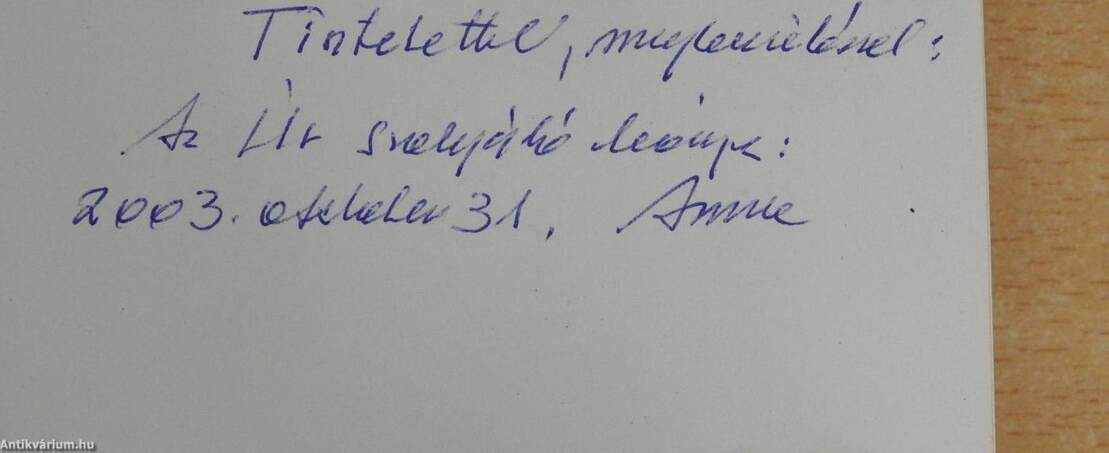 Tisztelettel, megbecsüléssel:
Az Úr szolgáló leánya:
2003. október 31. Annie
Antikvárium.hu